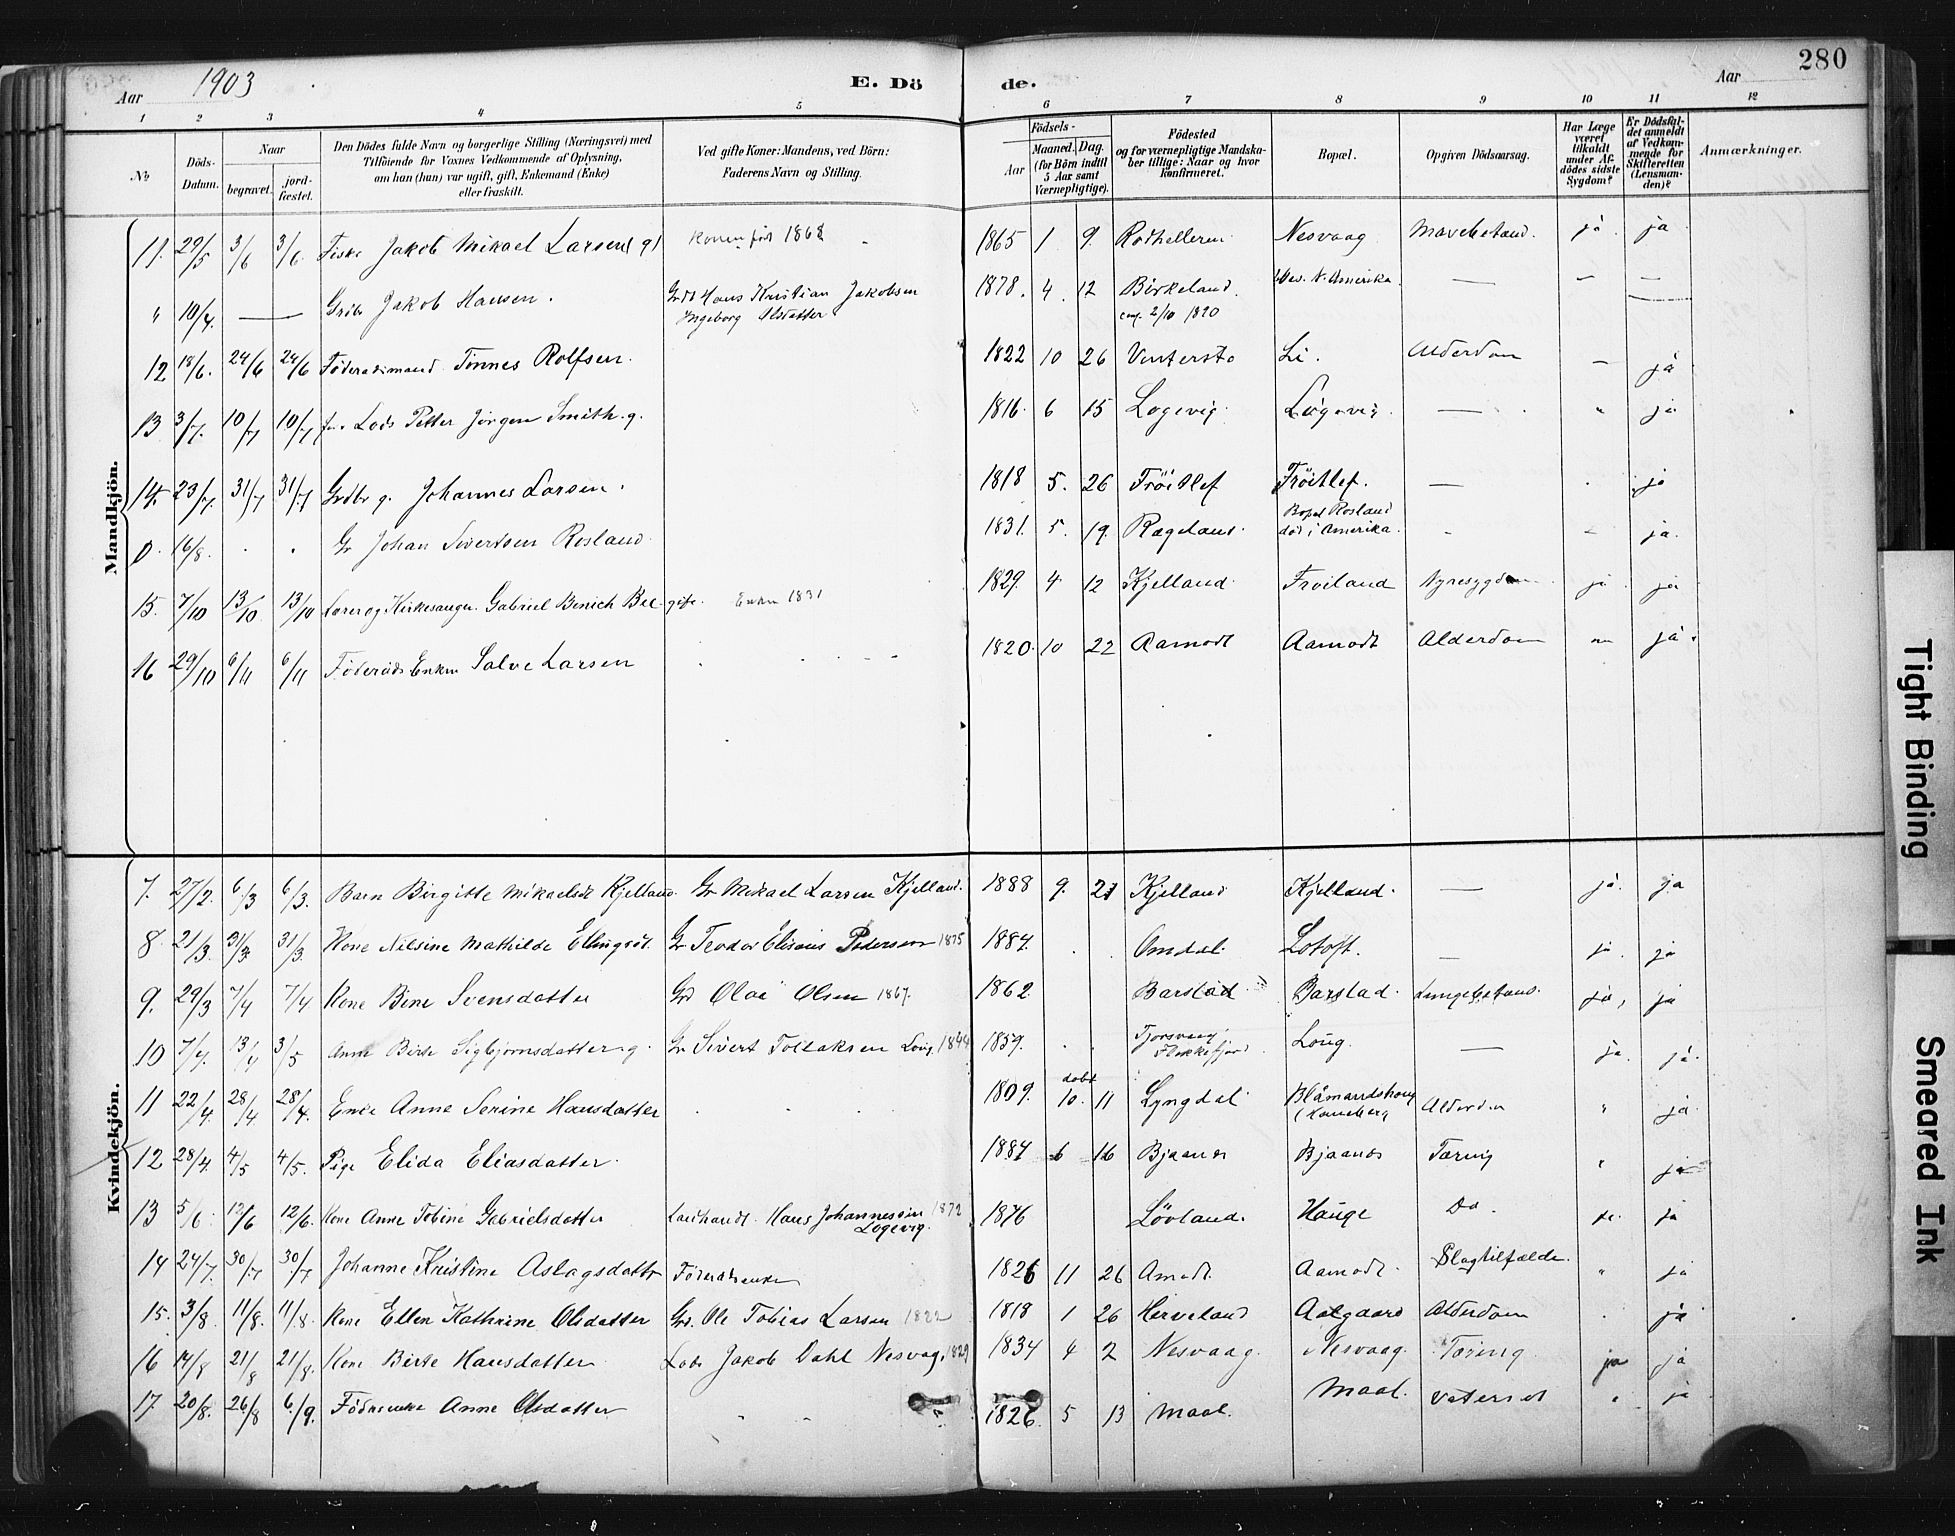 280
Aar 1903 E. Dö de. Aar
1 2 3 4 5 6 7 8 9 10 11 12
No. Döds-Datum. Naar begravet. jord-fæstet. Den Dödes fulde Navn og borgerlige Stilling (Næringsvei) med Tilföiende for Voxnes Vedkommende af Oplysning, om han (hun) var ugift, gift, Enkemand (Enke) eller fraskilt. Ved gifte Koner: Mandens, ved Börn: Faderens Navn og Stilling. Födsels- Aar Maaned. Dag. (for Börn indtil 5 Aar samt Værnepligtige). Födested og for værnepligtige Mandskaber tillige: Naar og hvor konfirmeret. Bopæl. Opgiven Dödsaarsag. Har Læge været tilkaldt under Afdödes sidste Sygdom? Er Dödsfaldet anmeldt af Vedkommende for Skifteretten (Lensmanden)? Anmærkninger.
Mandkjön.
11. 29/5 3/6 3/6. Jakob Mikael Larsen Konen föd 1868 1865 1 9. Nesvaag ja. ja
" 10/4. — — Jakob Hansen. Hans Kristian Jakobsen 1878. 4. 12 Birkeland. N. Amerika. — — —
Ingeborg Olsdatter conf. 2/10
12 18/6. 24/6 24/6 Föderaadsmand Tönnes Rolfsen. 1822 10 26 Li. Alderdom — ja
13 3/7. 10/7 10/7 Lods Petter Jörgen Smith. g. 1816. 6 15 Logevig. Logevig. — " ja
14. 23/7. 31/7 31/7 Grdbr g. Johannes Larsen. 1818 5. 26 Fröitlef Fröitlef. — ja
0. 16/8. Gr Johan Sivertsen Rosland 1831. 5. 19. Bopel Rosland
död i Amerika. - - ja.
15. 7/10 13/10 13/10 Lærer og Kirkesanger Gabriel gift. Enken 1831 1829. 4 12 Kjelland. Froiland ja ja
16 29/10 6/11 6/11 Föderaads Enkm Salve Larsen 1820. 10 22 Aamodt Aamodt Alderdom ja.
Kvindekjön.
7. 27/2. 6/3 6/3. Barn Birgitte Mikaelsdt Kjelland. Gr Mikael Larsen Kjelland. 1888 9. 21 Kjelland Kjelland. — ja. ja
8. 21/3. 31/3. 31/3. Kone Nilsine Mathilde Ellingsdt. Gr Teodor Elisæus Pedersen 1875 1884. Omdal. Lotoft. — ja. ja
9. 29/3 7/4 7/4 Kone Bine Svensdatter Grd Olai Olsen 1867. 1862 Barstad Barstad. ja, ja
10 7/4. 13/4 3/5 Anne Birte Sigbjörnsdatter g. Gr Sivert Tollaksen Loug. 1844 1859. Tjorsvaag
Flekkefjord. Loug. — ja. ja.
11 22/4 28/4 28/4. Enke Anne Serine Hansdatter 1809. döbt 10. 11 Lyngdal " ja.
12 28/4. 4/5 4/5. Pige Elida Eliasdatter. 1884 6 16 Bjaanes Bjaanes Tæring " ja
13 5/6. 12/6 12/6. Kone Anne Tobine Gabrielsdatter Landhandl. Hans Johannessen 1872 1876 Lövland. Hauge Do. ja
Logevig.
14 24/7. 30/7 30/7 Johanne Kristine Aslagsdatter Föderadsenke 1826 11 26 Amodt. Aamodt. Slagtilfælde. " ja
15. 3/8. 11/8. 11/8. Kone Ellen Kathrine Olsdatter Grd. Ole Tobias Larsen 1822 1818 1 26 Herveland Aalgaard Alderdom ja
16 14/8 21/8 21/8. Kone Birte Hansdatter Lods Jakob Dahl Nesvaag, 1829 1834 4 2 Nesvaag. Nesvaag. Tæring ja ja
17. 20/8. 26/8 6/9. Anne Olsdatter 1826. 5 13 Maal. Maal. Vatersot " ja
Tight Binding
Smeared Ink